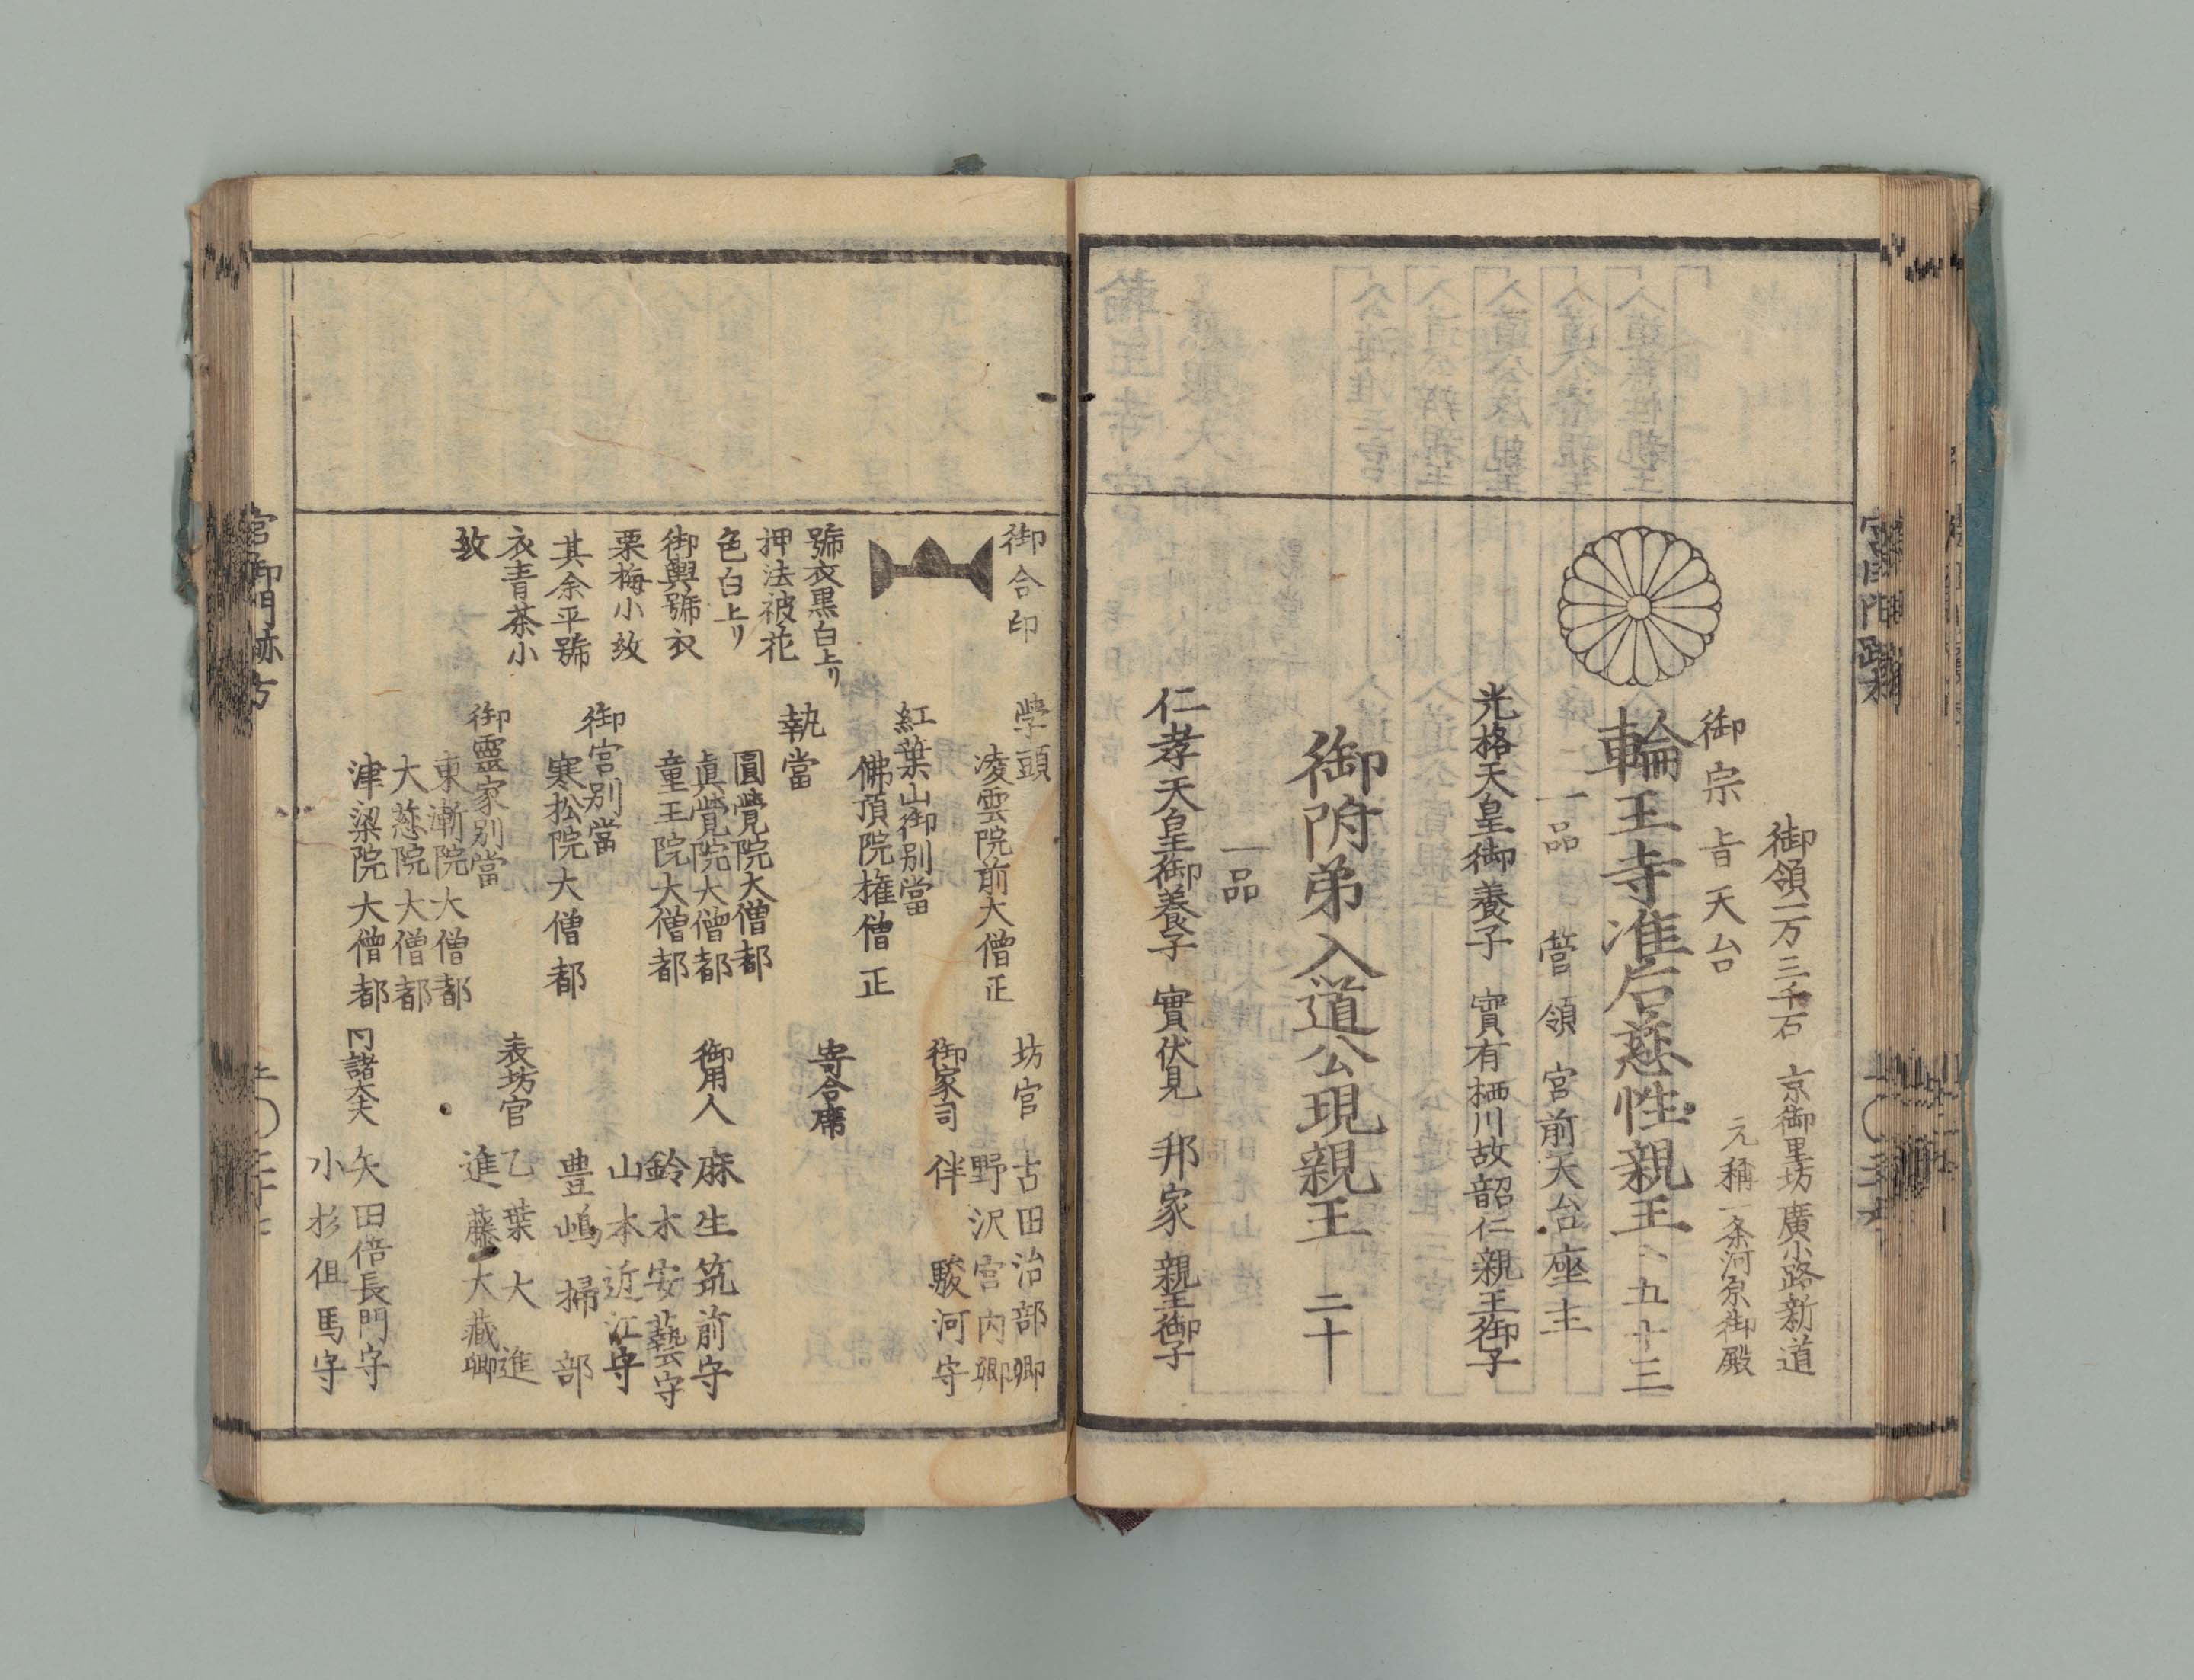 御領一万三千石　京御里坊廣小路新道
元稱一条河原御殿
御宗旨天台
輪王寺准后慈性親王　五十三
一品　管領宮　前天台座主
光格天皇御養子　實有栖川故韶仁親王御子
御附弟入道公現親王　二十
一品
仁孝天皇御養子　實伏見　邦家親王御子
御合印
號衣黒白上リ
押法被花
色白上リ
御輿號衣
栗梅小紋
其余平號
衣青茶小
紋
學頭
凌雲院前大僧正
紅葉山御別當
佛頂院権僧正
執當
圓覺院大僧都
眞覺院大僧都
童王院大僧都
御宮別當
寒松院大僧都
御靈家別當
東漸院大僧都
大慈院大僧都
津梁院大僧都
坊官　古田治部卿
野沢宮内卿
御家司　伴　駿河守
寄合席
御用人　麻生筑前守
鈴木安藝守
山本近江守
豊嶋掃部
表坊官　乙葉大進
進藤大藏卿
同諸大夫　矢田倍長門守
小杉但馬守
宮御門跡方